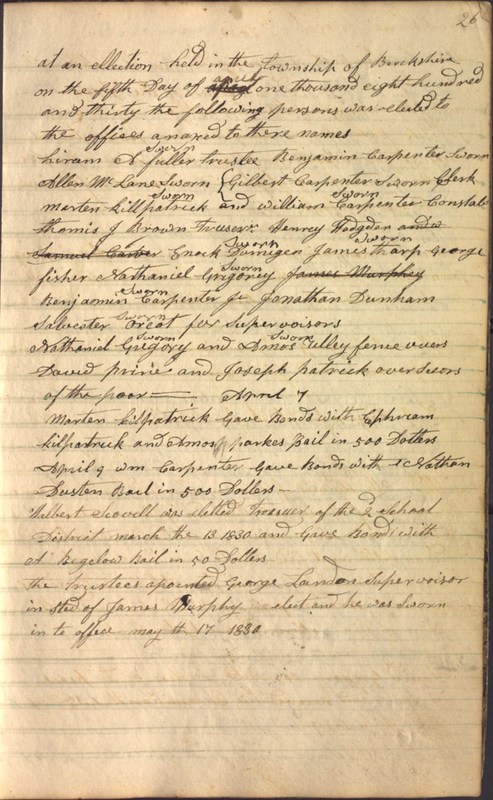 26
at an ellection held in the township of Berckshire
on the fifth Day of april one thousand eight hundred
and thirty the following persons was elected to
the offices anaxed to there names
hiram A fuller trustee Sworn Benjamin Carpenter Sworn
Allen Mc Lane Sworn Gilbert Carpenter Sworn Clerk
marten killpatrick Sworn and William Carpenter Sworn Constabl
thomis J Brown Tresurer Henrey Hodgden and
Samuel Carter Enock Domigen Sworn James tharp Sworn George
fisher Nathaniel Grigorey Sworn James Murphey
Benjamin Carpenter Jr Sworn Jonathan Dunham
Salvester Sworn for Supervoisors
Nathaniel Grigory Sworn and Amos utley Sworn fence vuers
David prince and Joseph patrick over Seors
of the poor April 7
Marten Cilpatrick Gave Bonds with Ephraim
kilpatrick and Amos parkes Bail in 500 Dollers
April 9 wm Carpenter Gave Bonds with Nathan
Dusten Bail in 500 Dollers
Gilbert Scovell was elected Tresurer of the 2 School
District march the 13 1830 and Gave Bond with
A Bigelow Bail in 50 Dollers
the Trustees apointed George Landon Supervoisor
in sted of James Murphy elect and he was Sworn
in to office may th 17 1830